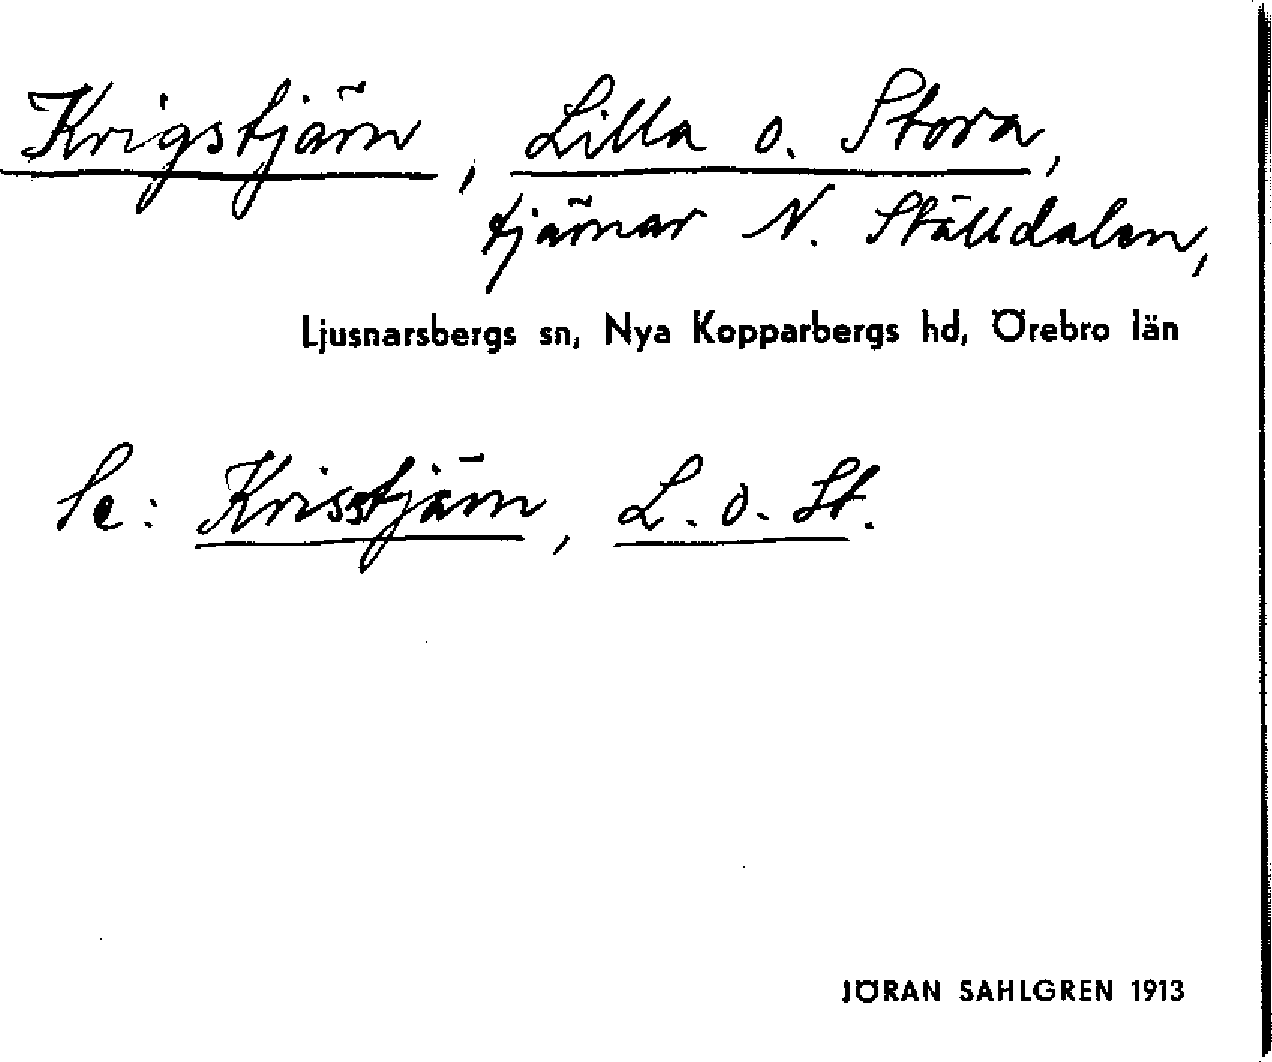 Krigstjärn, Lilla o. Stora,
tjärnar N. Ställdalen,
Ljusnarsbergs sn, Nya Kopparbergs hd, Örebro län
Se: Krisstjärn, L. o. St.
JÖRAN SAHLGREN 1913